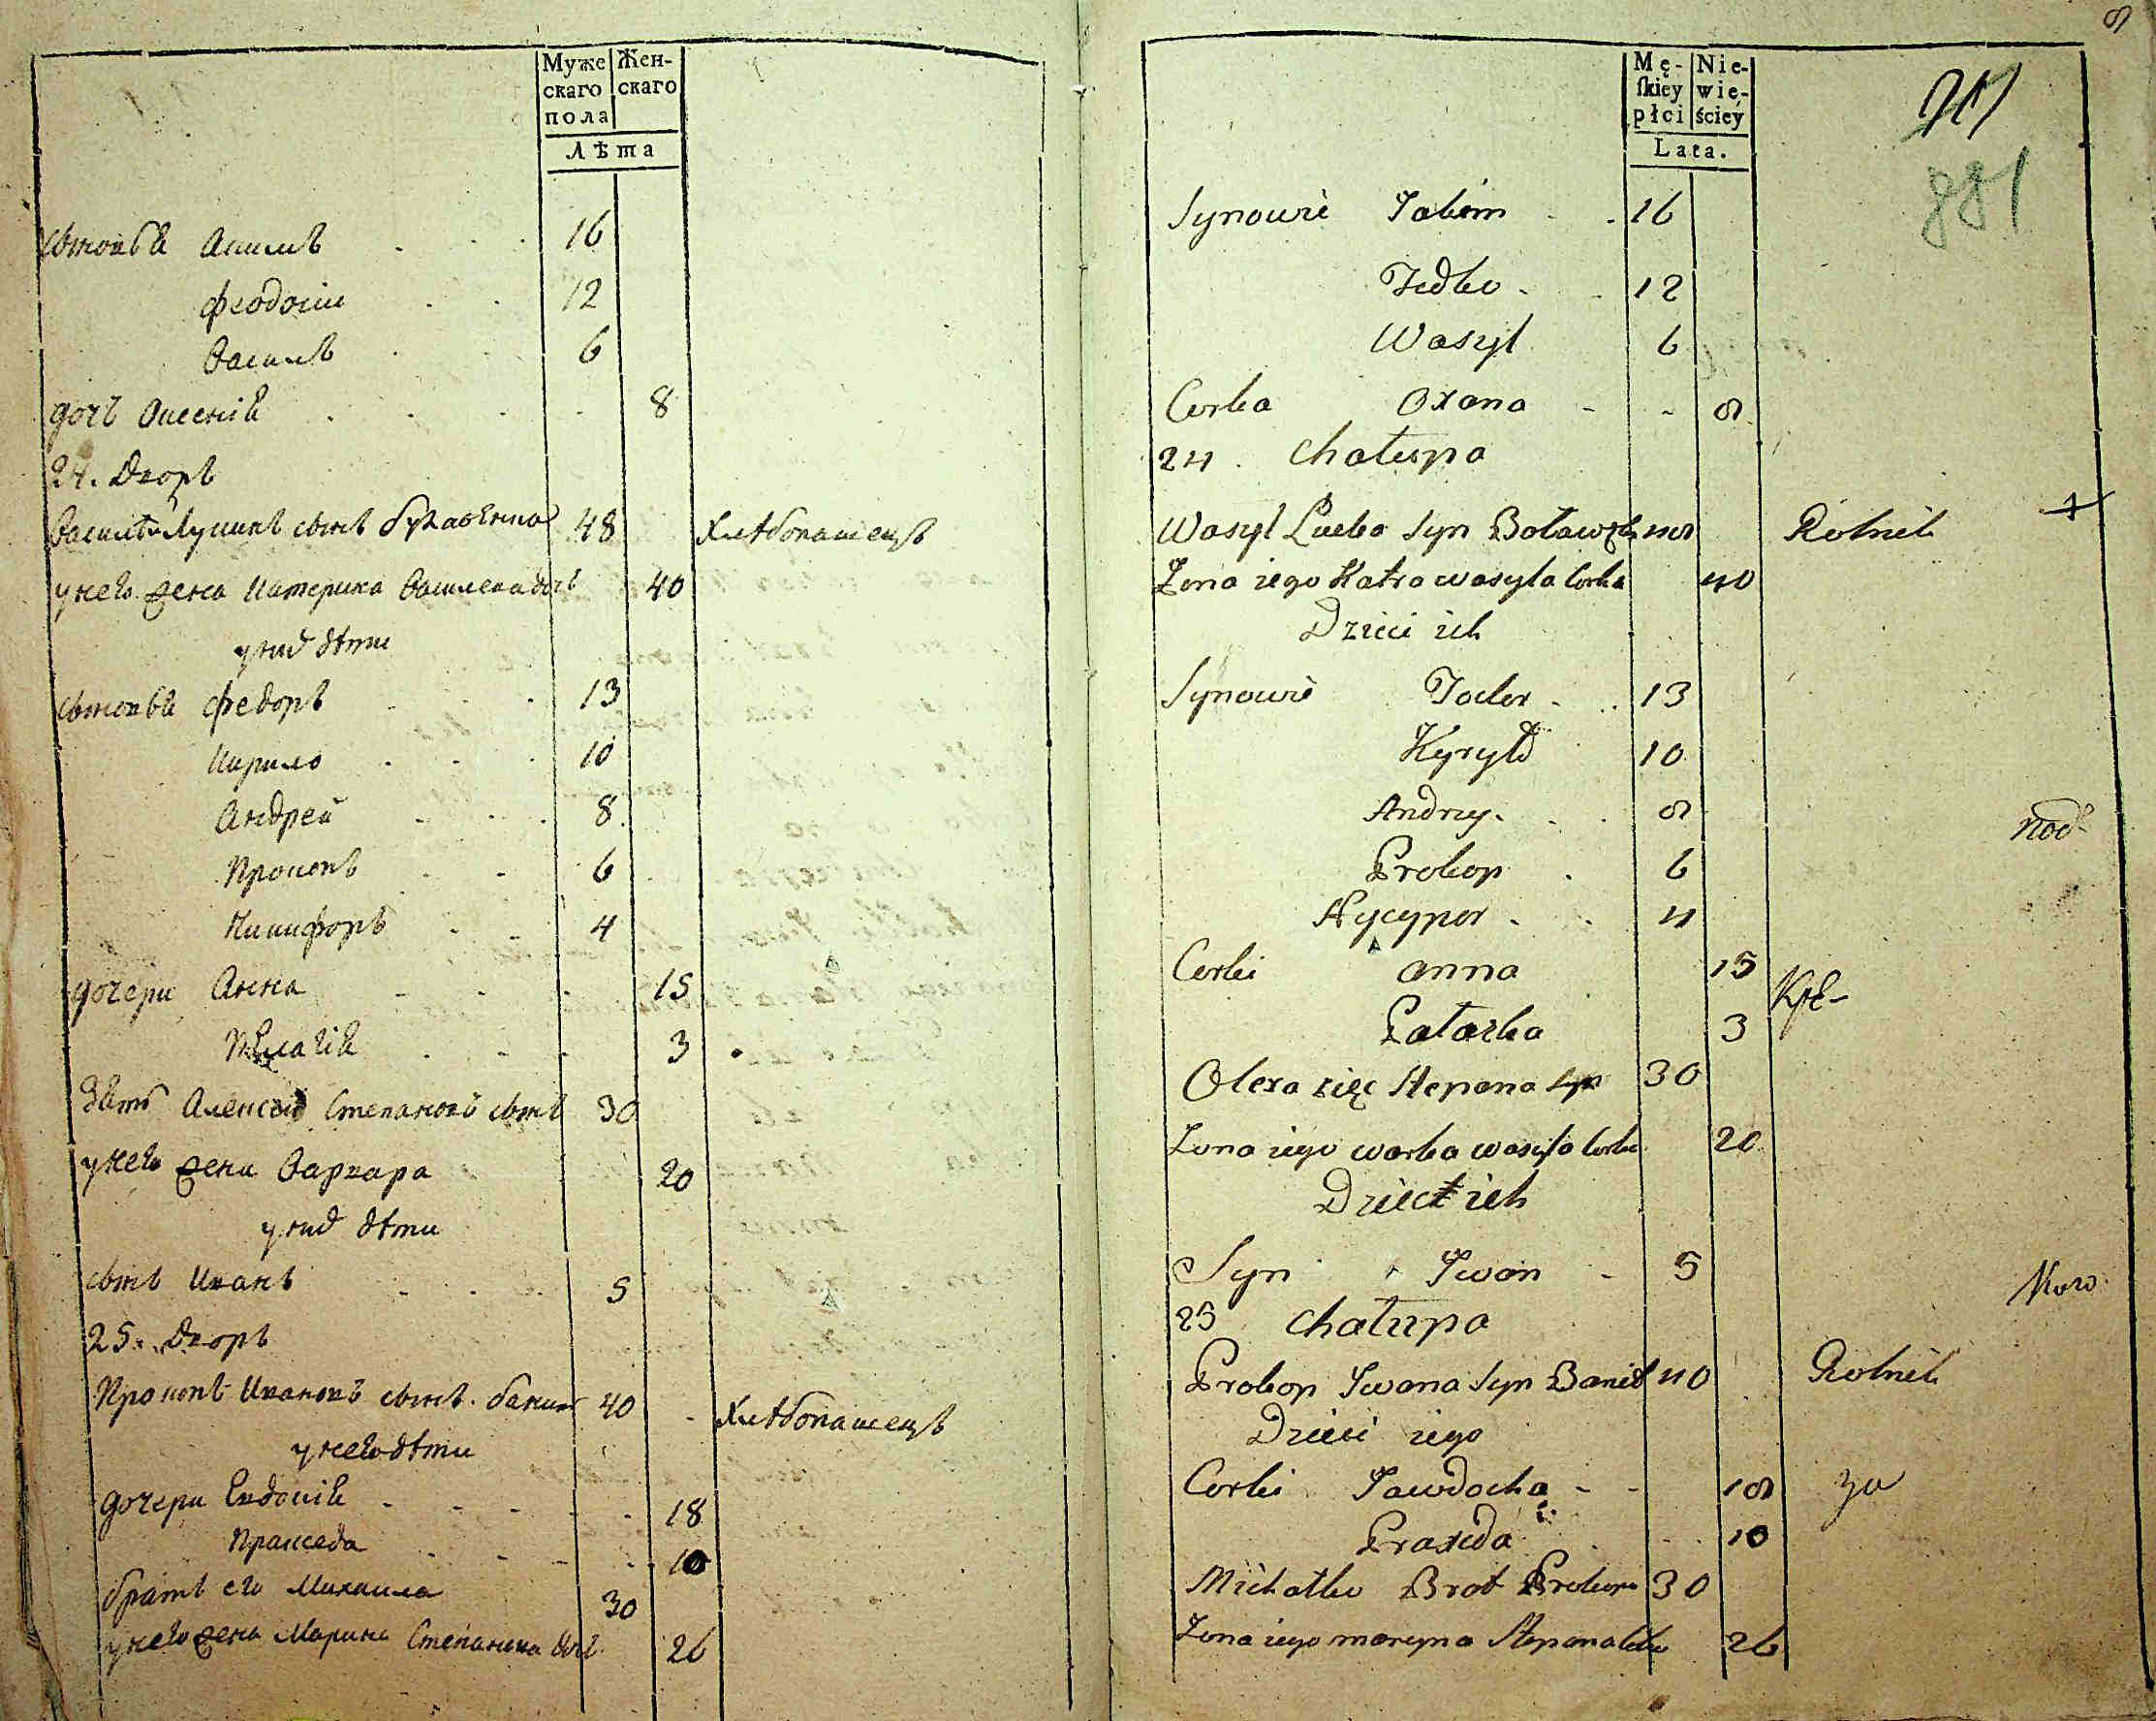 Муже
скаго
пола
Жен-
скаго
Лѣта
сынов҃ѧ Акимъ 16
Феодосiи 12
Василь 6
дочь Оксенiѧ 8
24. Дворъ
Василей Лукинъ сынъ 48 Хлѣбопашецъ
у него жена Катерина Василева дочь 40
у них дѣти
сыновѧ Федоръ 13
Кирило 10
Андрей 8
Прокопъ 6
Никифоръ 4
дочери Анна 15
Пѣлагiѧ 3
зять Алексей Степановъ сынъ 30
у него жена Варвара 20
у них дѣти
сынъ Иванъ 5
25. Дворъ
Прокопъ Ивановъ сынъ 40 Хлѣбопашецъ
у него дѣти
дочери Евдокiѧ 18
Пракседа 10
братъ его Михаила 30
у него жена Марина Степанова доч. 26
8
Mę-
ſkiey
płci
Nie-
wie-
ściey
Lata.
Synowie Jakim 16
Fedko 12
Wasyl 6
Corka Oxana 8
24. Chałupa
Wasyl Łucka Syn 48 Rolnik
Zona iego Katra wasyla Corka 40
Dzieci ich
Synowie Todor 13
Kyryło 10
Andrey 8
Prokop 6
Nycypor 4
Corki anna 15
Pałaszka 3
Olexa zięc Stepana Syn 30
Zona iego warka wasyla Corka 20
Dzieci ich
Syn Iwan 5
25 Chałupa
Prokop Iwana Syn 40 Rolnik
Dzieci iego
Corki Jawdocha 18
Praxeda 10
Michałko Brat Prokopa 30
Zona iego maryna Stepana Corka 26